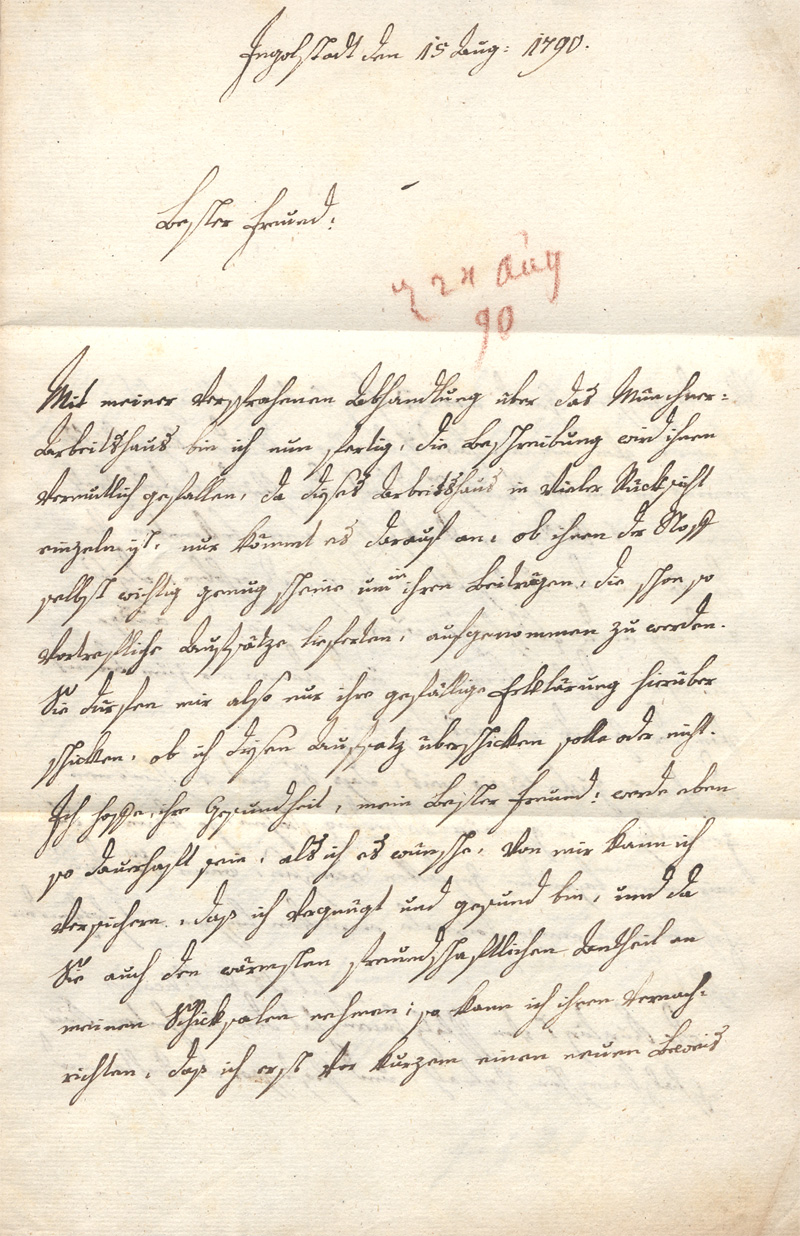 Ingolstadt den 15 Aug: 1790.
Bester Freund:
24 Aug
90
Mit meiner versprochenen Abhandlung über das Münchner-
Arbeitshaus bin ich nun fertig, die Beschreibung wird ihnen
vermutlich gefallen, da dyses Arbeitshaus in vieler Rücksicht
einzeln yst, nur kömmt es darauf an, ob ihnen der Stoff
selbst wichtig genug scheine um in ihren Beiträgen, die schon so
vortrefliche Aufsätze lieferten, aufgenommen zu werden.
Sie dürfen mir also nur ihre gefällige Erklärung hierüber
schicken, ob ich dysen Aufsatz überschicken solle oder nicht.
Ich hoffe, ihre Gesundheit, mein Bester Freund: werde eben
so dauerhaft sein, als ich es wünsche, von mir kann ich
versichern, daß ich vergnügt und gesund bin, und da
Sie auch den wärmsten freundschaftlichen Antheil an
meinen Schicksalen nehmen; so kann ich ihnen benach-
richten, daß ich erst vor kurzem einen neuen Beweis